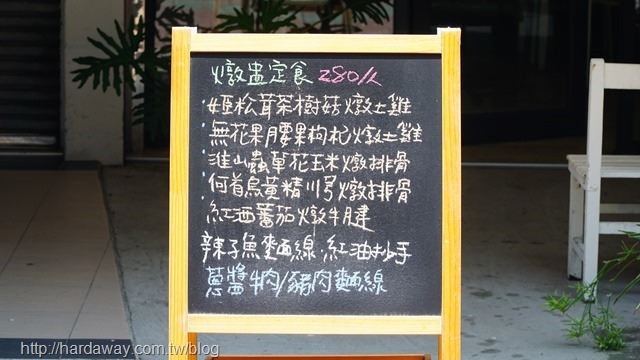 燉盅定食 280/人
·姬松茸茶樹菇燉土雞
·無花果腰果枸杞燉土雞
·淮山蟲草花玉米燉排骨
·何首烏黃精川芎燉排骨
紅酒蕃茄燉牛腱
辣子魚麵線·紅油抄手
蔥醬牛肉/豬肉麵線
http://hardaway.com.tw/blog